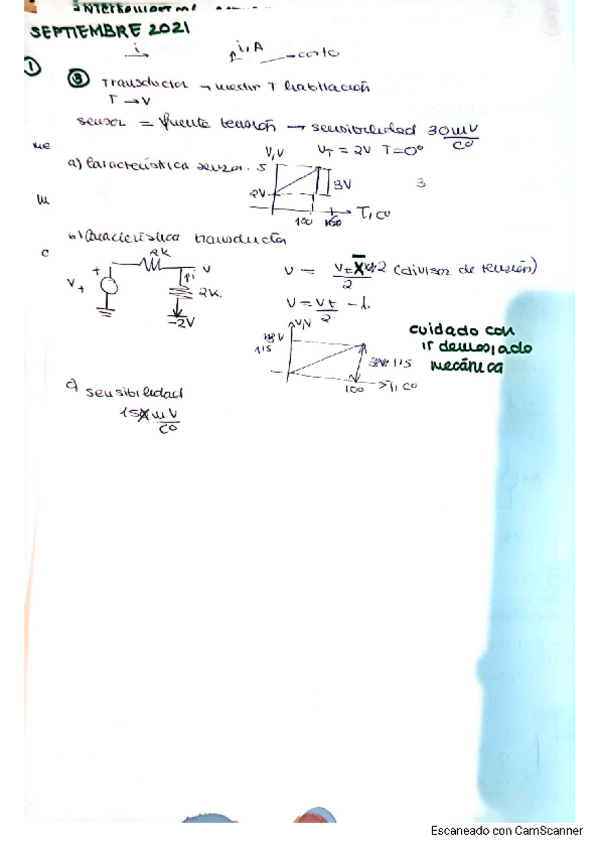 SEPTIEMBRE 2021
i
i, A
corto
1
B Transductor → medir T habitación
T → V
sensor = fuente tensión → sensibilidad 30 mV/Cº
a) Característica sensor.
V, V
VT = 2V T=0º
5
2V
3V
3
100
T, Cº
b) Característica transductor
2K
V+
+
i
V
2K
-2V
V = (divisor de tensión)
V = Vt/2 - 1.
V, V
1'5
1'5
100
T, Cº
cuidado con
ir demasiado
mecánica
c) sensibilidad
15 mV/Cº
Escaneado con CamScanner